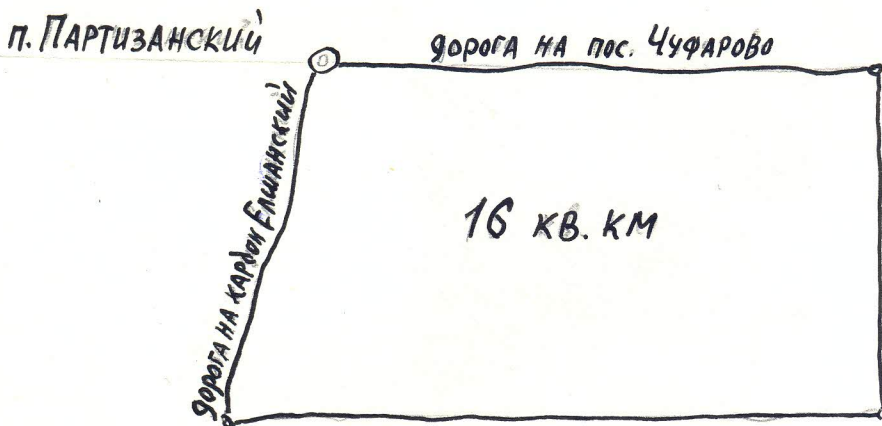 п. ПАРТИЗАНСКИЙ
дорога на пос. Чуфарово
дорога на кардон Елшанский
16 кв. км